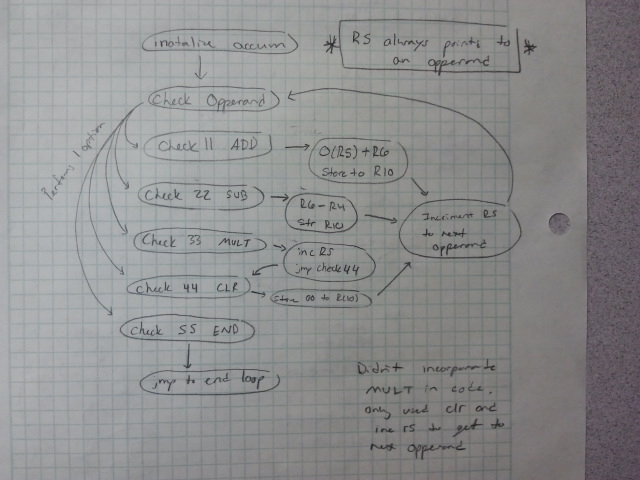 inatalize accum
* RS always points to *
an opperand
Check Opperand
Perform 1 option
Check 11 ADD
0(R5) + R6
Store to R10
Check 22 SUB
R6 - R4
Str R10
Incriment R5
to next
opperand
Check 33 MULT
inc R5
jmp check 44
Check 44 CLR
Store 00 to R(10)
Check 55 END
jmp to end loop
Didn't incorporate
MULT in code.
only used clr and
inc R5 to get to
next opperand